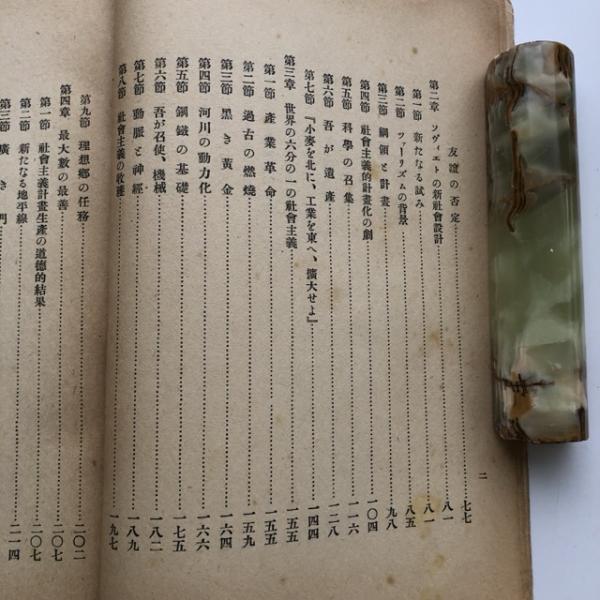 友誼の否定……七七
第二章 ソヴィエトの新社會設計……八一
第一節 新たなる試み……八一
第二節 ツァーリズムの背景……八五
第三節 綱領と計畫……九八
第四節 社會主義的計畫化の創……一〇四
第五節 科學の召集……一一六
第六節 吾が遺產……一二八
第七節 『小麥を北に、工業を東へ、擴大せよ』……一四四
第三章 世界の六分の一の社會主義……一五五
第一節 產業革命……一五五
第二節 過古の燃燒……一五九
第三節 黑き黃金……一六四
第四節 河川の動力化……一六六
第五節 鋼鐵の基礎……一七五
第六節 吾が召使、機械……一八二
第七節 動脈と神經……一八九
第八節 社會主義の收穫……一九七
第九節 理想鄕の任務……二〇二
第四章 最大數の最善……二〇七
第一節 社會主義計畫生產の道德的結果……二〇七
第二節 新たなる地平線……二一四
第三節 廣き門
二